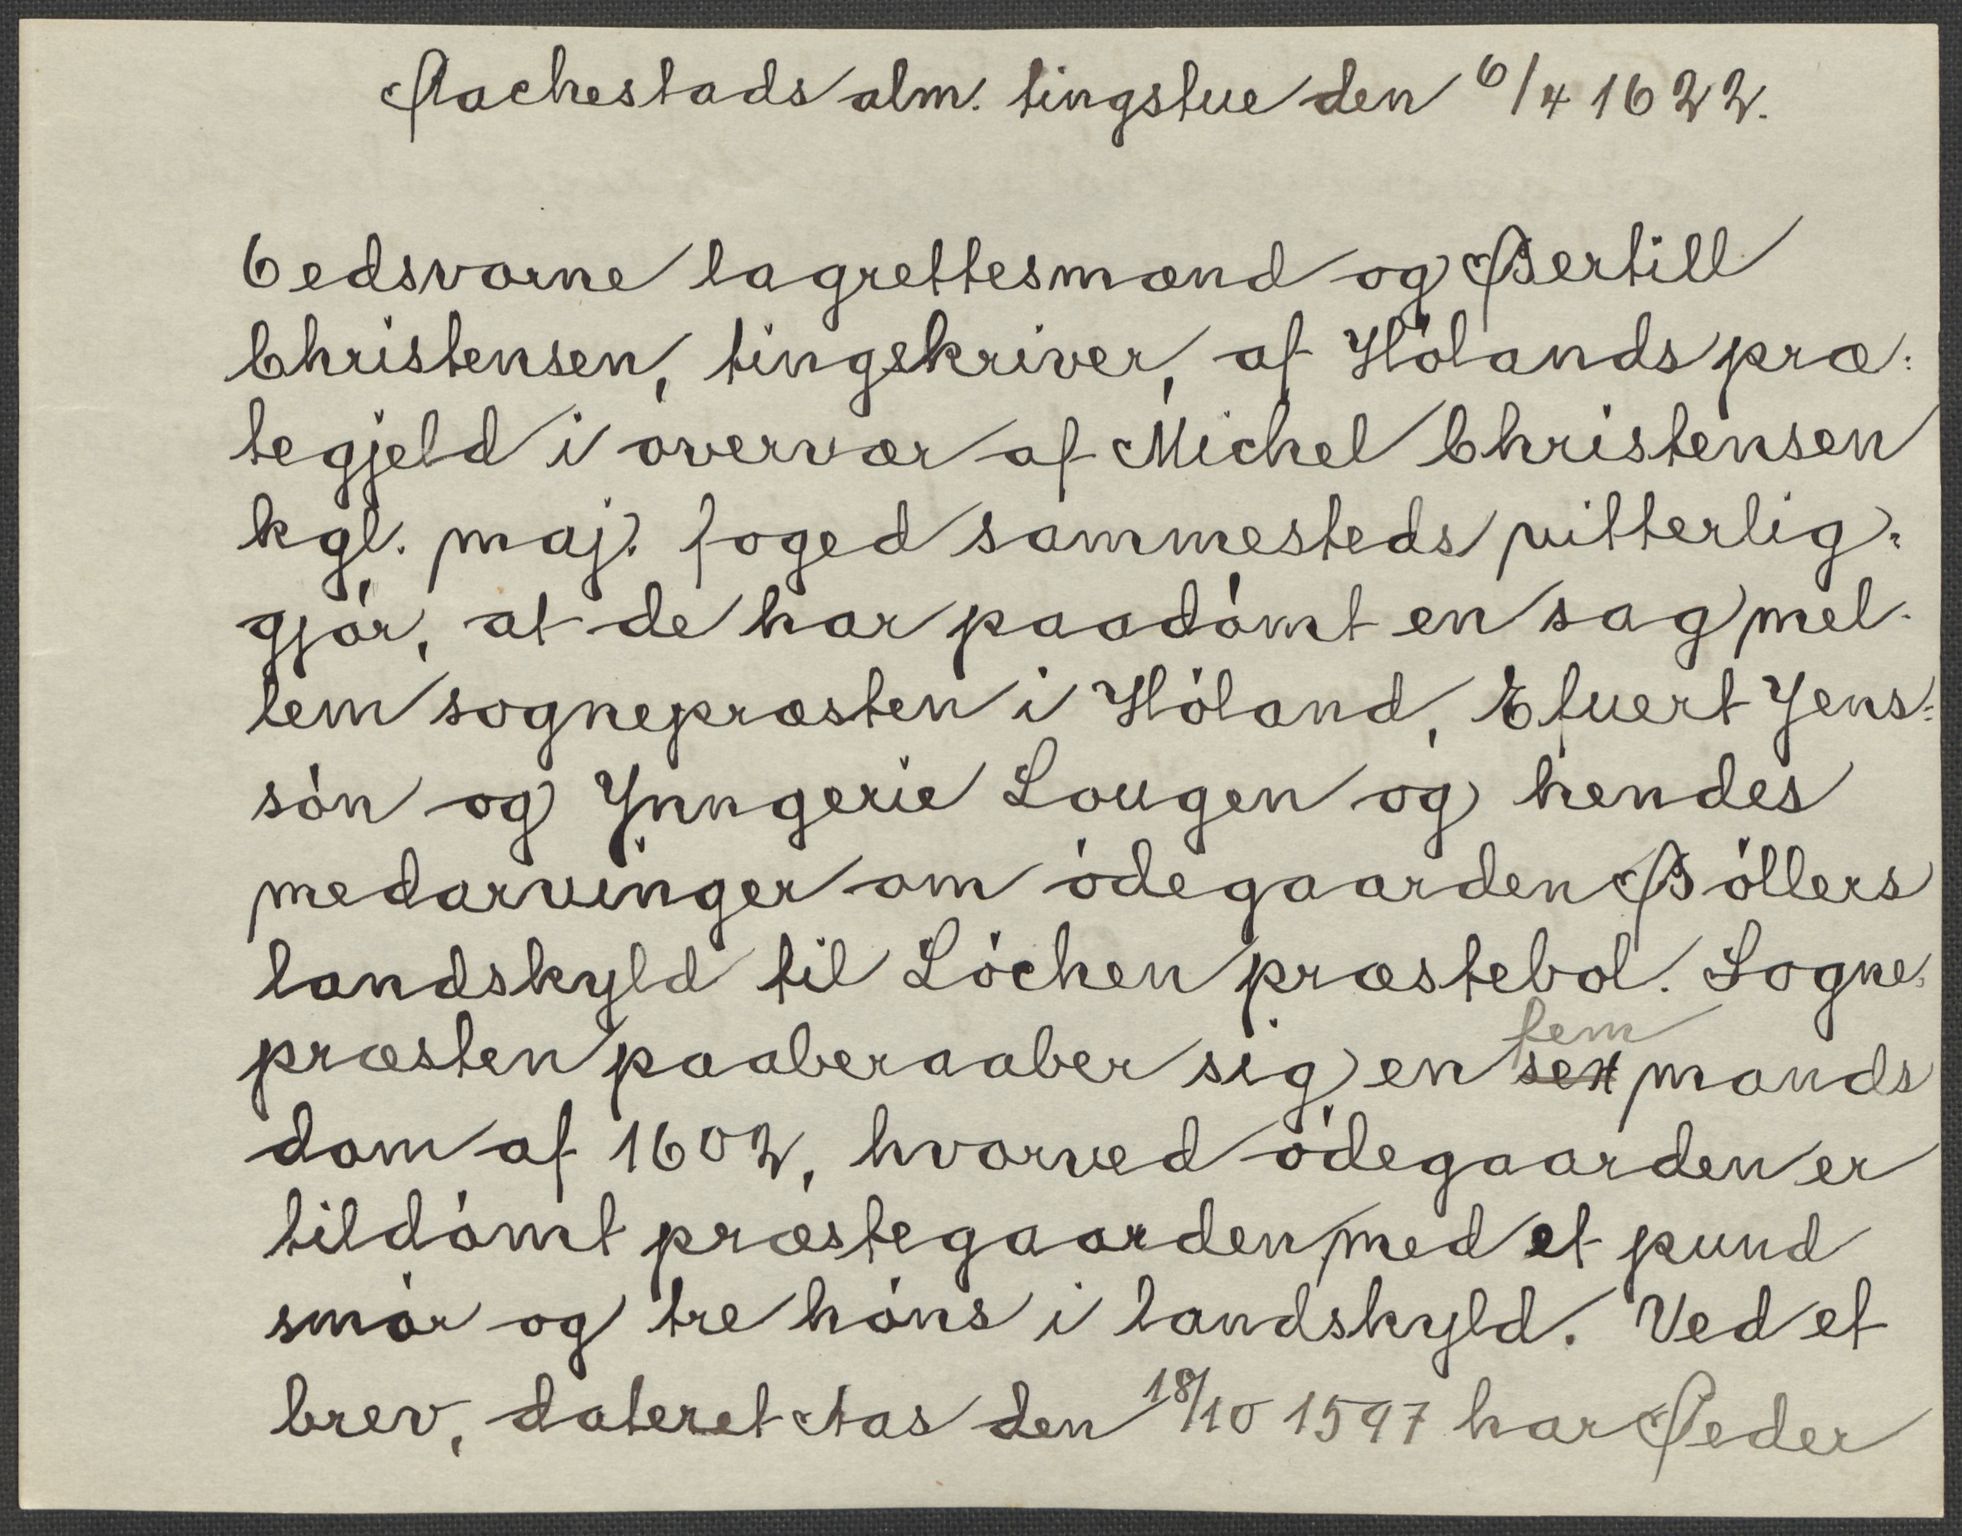 Aachestads alm. tingstue den 6/4 1622.
6 edsvorne lagrettesmænd og Bertill
Christensen, tingskriver, af Hölands præ:
tegjeld i overvær af Michel Christensen
kgl. maj. foged sammesteds vitterlig:
gjör, at de har paadömt en sag mel-
lem sognepræsten i Höland, Efuert Jens:
sön og Ynngerie Lougen og hendes
medarvinger om ödegaarden Böllers
landskyld til Löchen præstebol. Sogne:
præsten paaberaaber sig en sex fem mands
dom af 1602, hvorved ödegaarden er
tildömt præstegaarden med et pund
smör og tre höns i landskyld. Ved et
brev, dateret Aas den 18/10 1597 har Peder